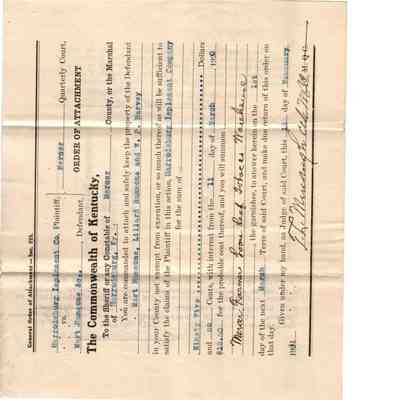 General Order of Attachment — Sec. 221.
Mercer Quarterly Court,
Harrodsburg Implement Co Plaintiff,
vs.
ORDER OF ATTACHMENT
Mort Sumeone &c., Defendant.
The Commonwealth of Kentucky,
To the Sheriff or any Constable of Mercer County, or the Marshal
of Harrodsburg, Ky.:
You are commanded to attach and safely keep the property of the Defendant
Mort Sumeone, Lilliard Sumeone and W. P. Harvey
in your County not exempt from execution, or so much thereof as will be sufficient to
satisfy the claims of the Plaintiff in this action, Harrodsburg Implement Company
for the sum of
Ninety Five Dollars
and no Cents, with interest from the 11 day of March 19
$20.00 for the probable cost thereof, and you will summon
Mercer Farmers Loose Leaf Tobacco Warehouse
the garnishee, to answer herein on the 1st
day of the next March Term of said Court, and make due return of this order on
that day.
Given under my hand, as Judge of said Court, this day of February
1921